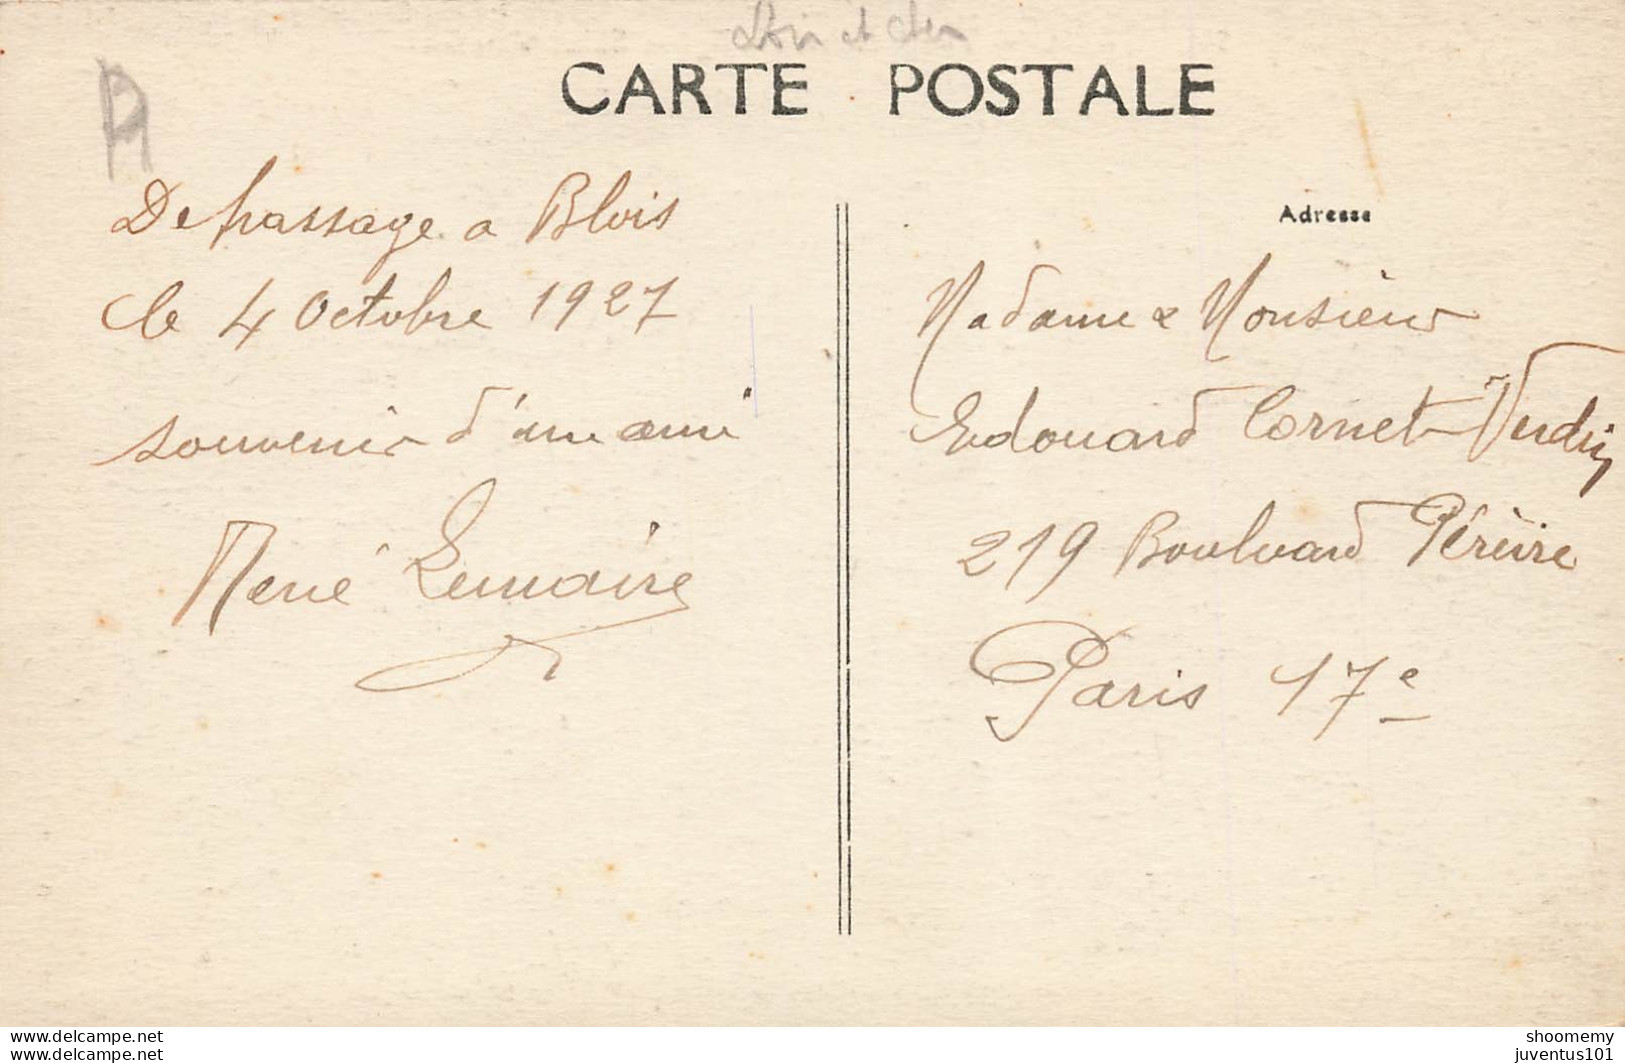 Loir et Cher
CARTE POSTALE
De passage a Blois
le 4 Octobre 1927
souvenir d'un ami
René Lemaire
Adresse
Madame & Monsieur
Edouard Cornet-Verdin
219 Boulevard Péreire
Paris 17e
www.delcampe.net
www.delcampe.net
shoomemy
juventus101